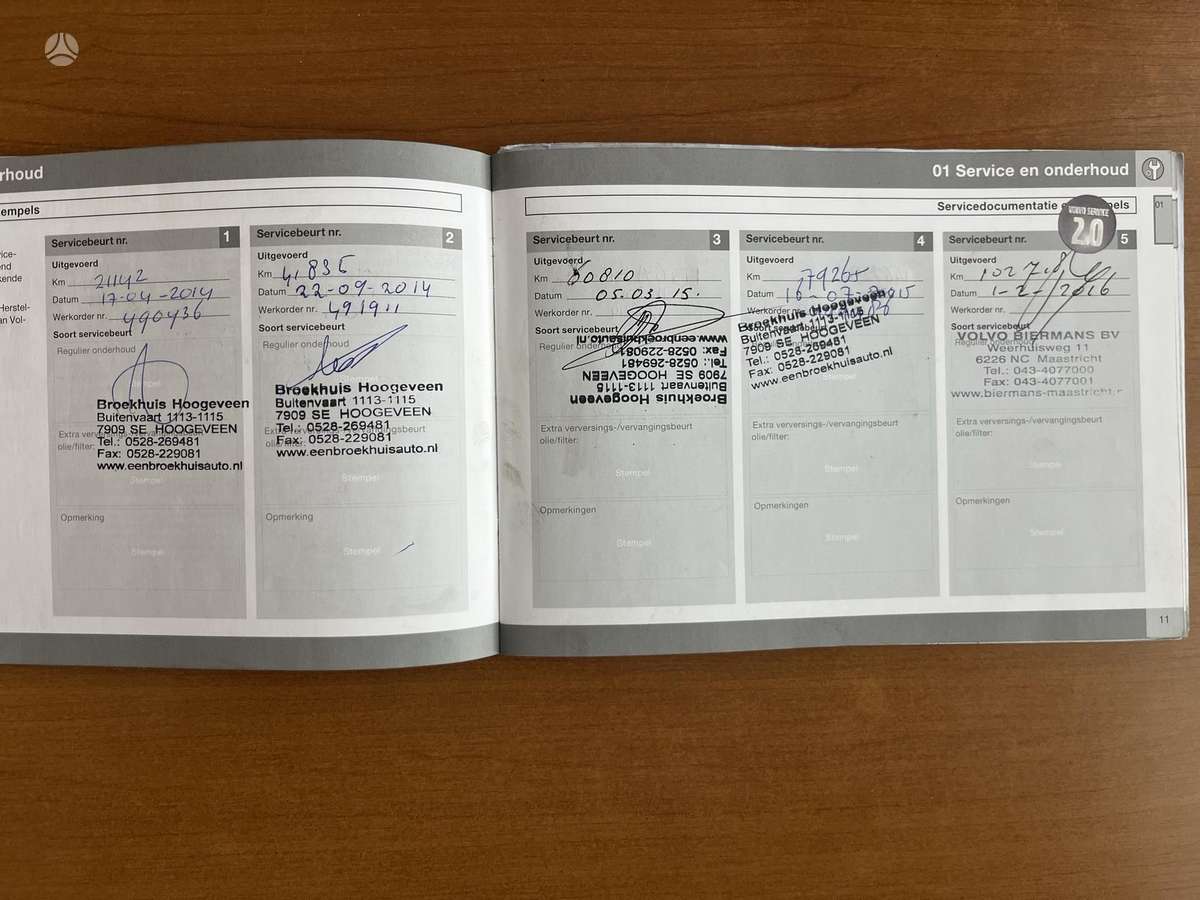 rhoud
empels
Servicebeurt nr. 1
Uitgevoerd
Km 21142
Datum 17-04-2014
Werkorder nr. 490436
Soort servicebeurt
Regulier onderhoud
Stempel
Broekhuis Hoogeveen
Buitenvaart 1113-1115
7909 SE HOOGEVEEN
Tel.: 0528-269481
Fax: 0528-229081
www.eenbroekhuisauto.nl
Extra verversings-/vervangingsbeurt
olie/filter:
Stempel
Opmerking
Stempel
Servicebeurt nr. 2
Uitgevoerd
Km 41835
Datum 22-09-2014
Werkorder nr. 491911
Soort servicebeurt
Regulier onderhoud
Broekhuis Hoogeveen
Buitenvaart 1113-1115
7909 SE HOOGEVEEN
Tel.: 0528-269481
Fax: 0528-229081
www.eenbroekhuisauto.nl
Extra verversings-/vervangingsbeurt
Stempel
Opmerking
Stempel
01 Service en onderhoud
01
Servicedocumentatie
VOLVO SERVICE
2.0
Servicebeurt nr. 3
Uitgevoerd
Km 60810
Datum 05.03.15.
Werkorder nr.
Soort servicebeurt
Regulier onderhoud
Broekhuis Hoogeveen
Buitenvaart 1113-1115
7909 SE HOOGEVEEN
Tel.: 0528-269481
Fax: 0528-229081
www.eenbroekhuisauto.nl
Extra verversings-/vervangingsbeurt
olie/filter:
Stempel
Opmerkingen
Stempel
Servicebeurt nr. 4
Uitgevoerd
Km 79265
Datum
Werkorder nr.
Broekhuis Hoogeveen
Buitenvaart 1113-1115
7909 SE HOOGEVEEN
Tel.: 0528-269481
Fax: 0528-229081
www.eenbroekhuisauto.nl
Extra verversings-/vervangingsbeurt
olie/filter:
Stempel
Opmerkingen
Stempel
Servicebeurt nr. 5
Uitgevoerd
Km
Datum 1-2-2016
Werkorder nr.
Soort servicebeurt
VOLVO BIERMANS BV
Weerhuisweg 11
6226 NC Maastricht
Tel.: 043-4077000
Fax: 043-4077001
www.biermans-maastricht.
Extra verversings-/vervangingsbeurt
olie/filter:
Stempel
Opmerkingen
Stempel
11